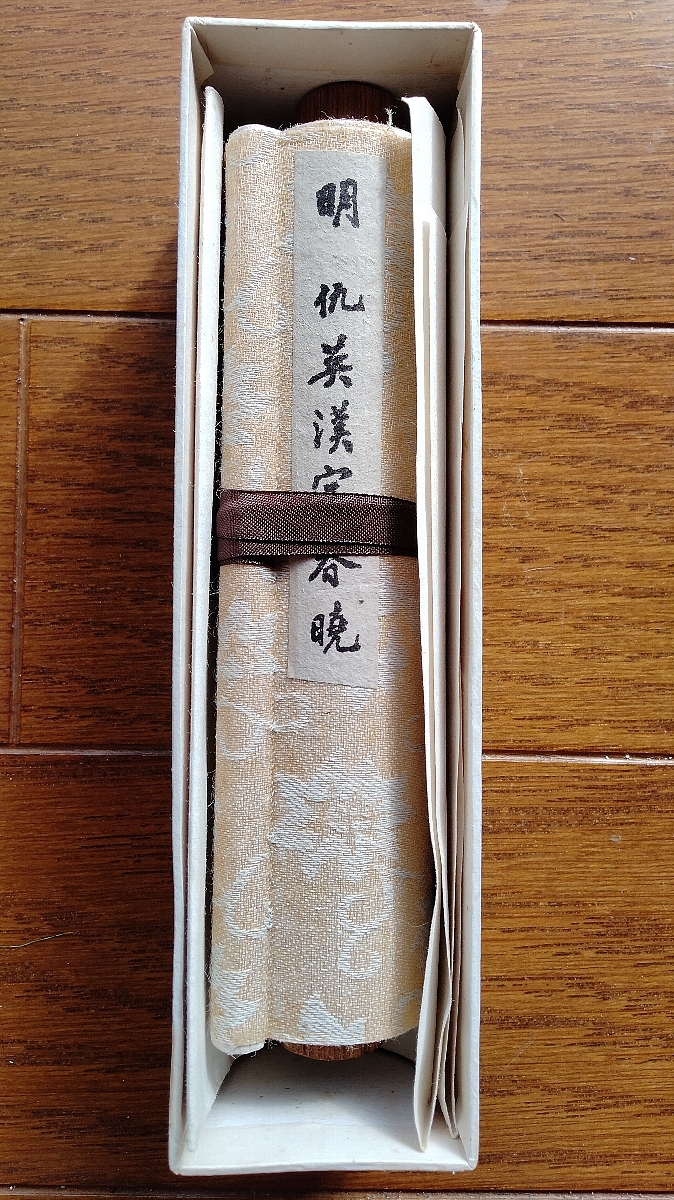 明 仇英漢宮春曉